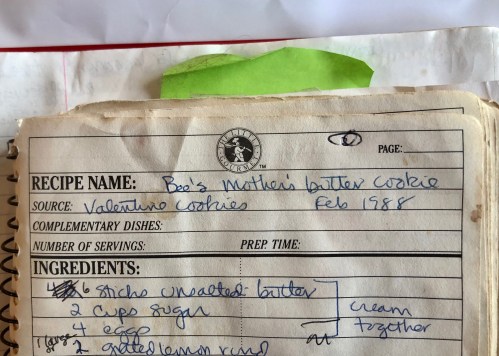 THE LITTLE GOURMET ™
PAGE:
RECIPE NAME: Bee's Mother's butter cookie
SOURCE: Valentine cookies Feb 1988
COMPLEMENTARY DISHES:
NUMBER OF SERVINGS: PREP. TIME:
INGREDIENTS:
6 sticks unsalted butter
2 cups sugar cream
4 eggs together
1 large or 2 grated lemon rind